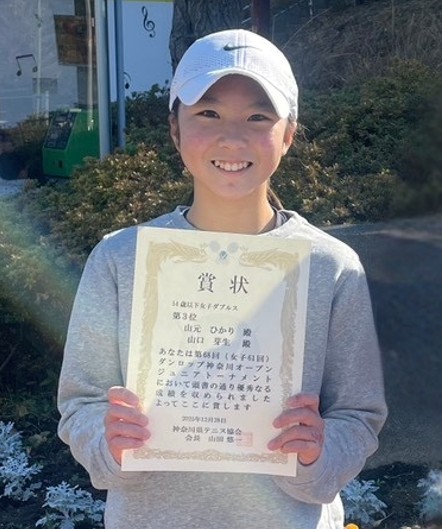 賞状
14歳以下女子ダブルス
第3位
山元 ひかり 殿
山口 芽生 殿
あなたは第68回(女子61回)
ダンロップ神奈川オープン
ジュニアトーナメント
において頭書の通り優秀なる
成績を収められました
よってここに賞します
2025年12月28日
神奈川県テニス協会
会長 山田 悠一